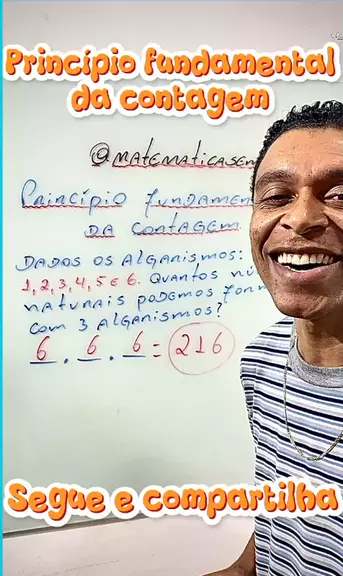 Princípio fundamental
da contagem
@matematicasem
Princípio fundamen
da contagem
Dados os algarismos:
1, 2, 3, 4, 5 e 6. Quantos nú
naturais podemos form
com 3 algarismos?
6 . 6 . 6 = 216
Segue e compartilha